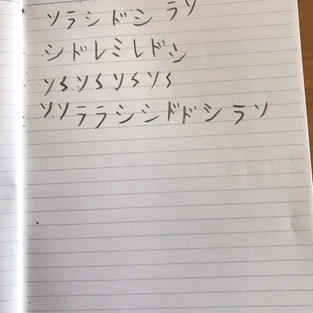 ソラシドシ ラソ
シドレミレドシ
ソSソSソSソS
ソソララシシドドシラソ